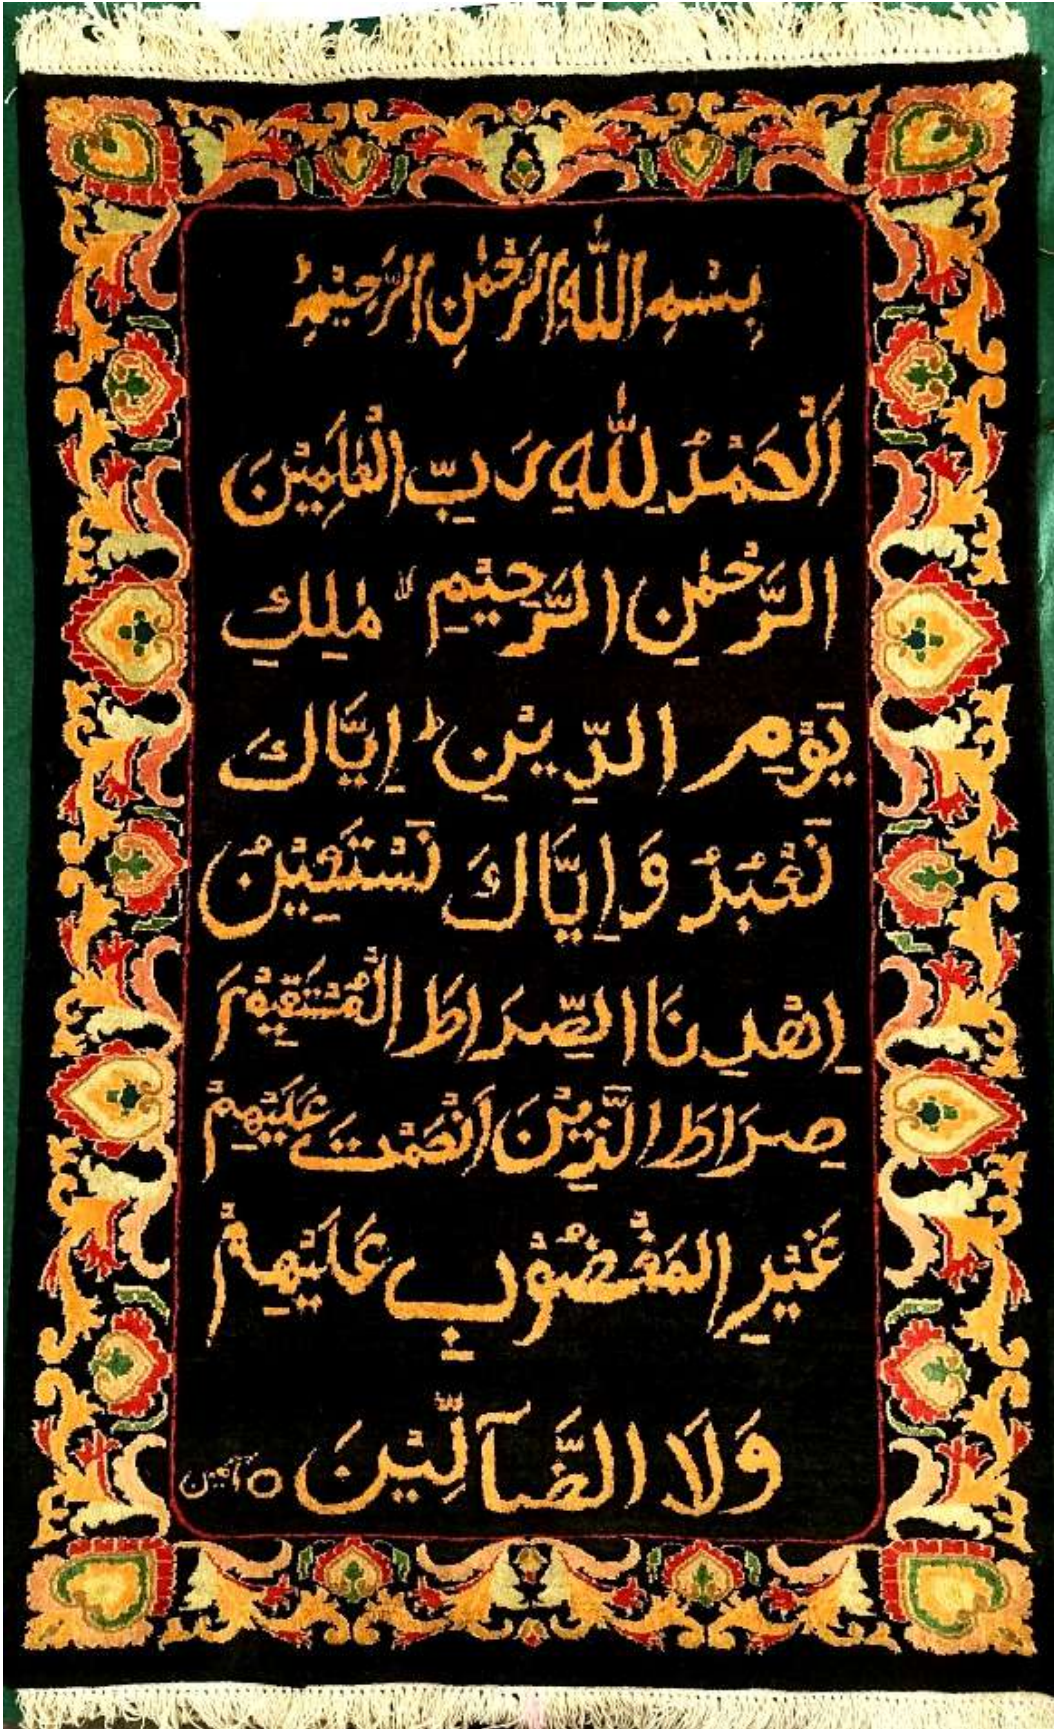 بِسْمِ اللّٰهِ الرَّحْمٰنِ الرَّحِيْمِؕ
اَلْحَمْدُ لِلّٰهِ رَبِّ الْعٰلَمِيْنَ
الرَّحْمٰنِ الرَّحِيْمِۙ مٰلِكِ
يَوْمِ الدِّيْنِؕ اِيَّاكَ
نَعْبُدُ وَاِيَّاكَ نَسْتَعِيْنُ
اِهْدِنَا الصِّرَاطَ الْمُسْتَقِيْمَ
صِرَاطَ الَّذِيْنَ اَنْعَمْتَ عَلَيْهِمْ
غَيْرِ الْمَغْضُوْبِ عَلَيْهِمْ
وَلَا الضَّآلِّيْنَ ○ آمین